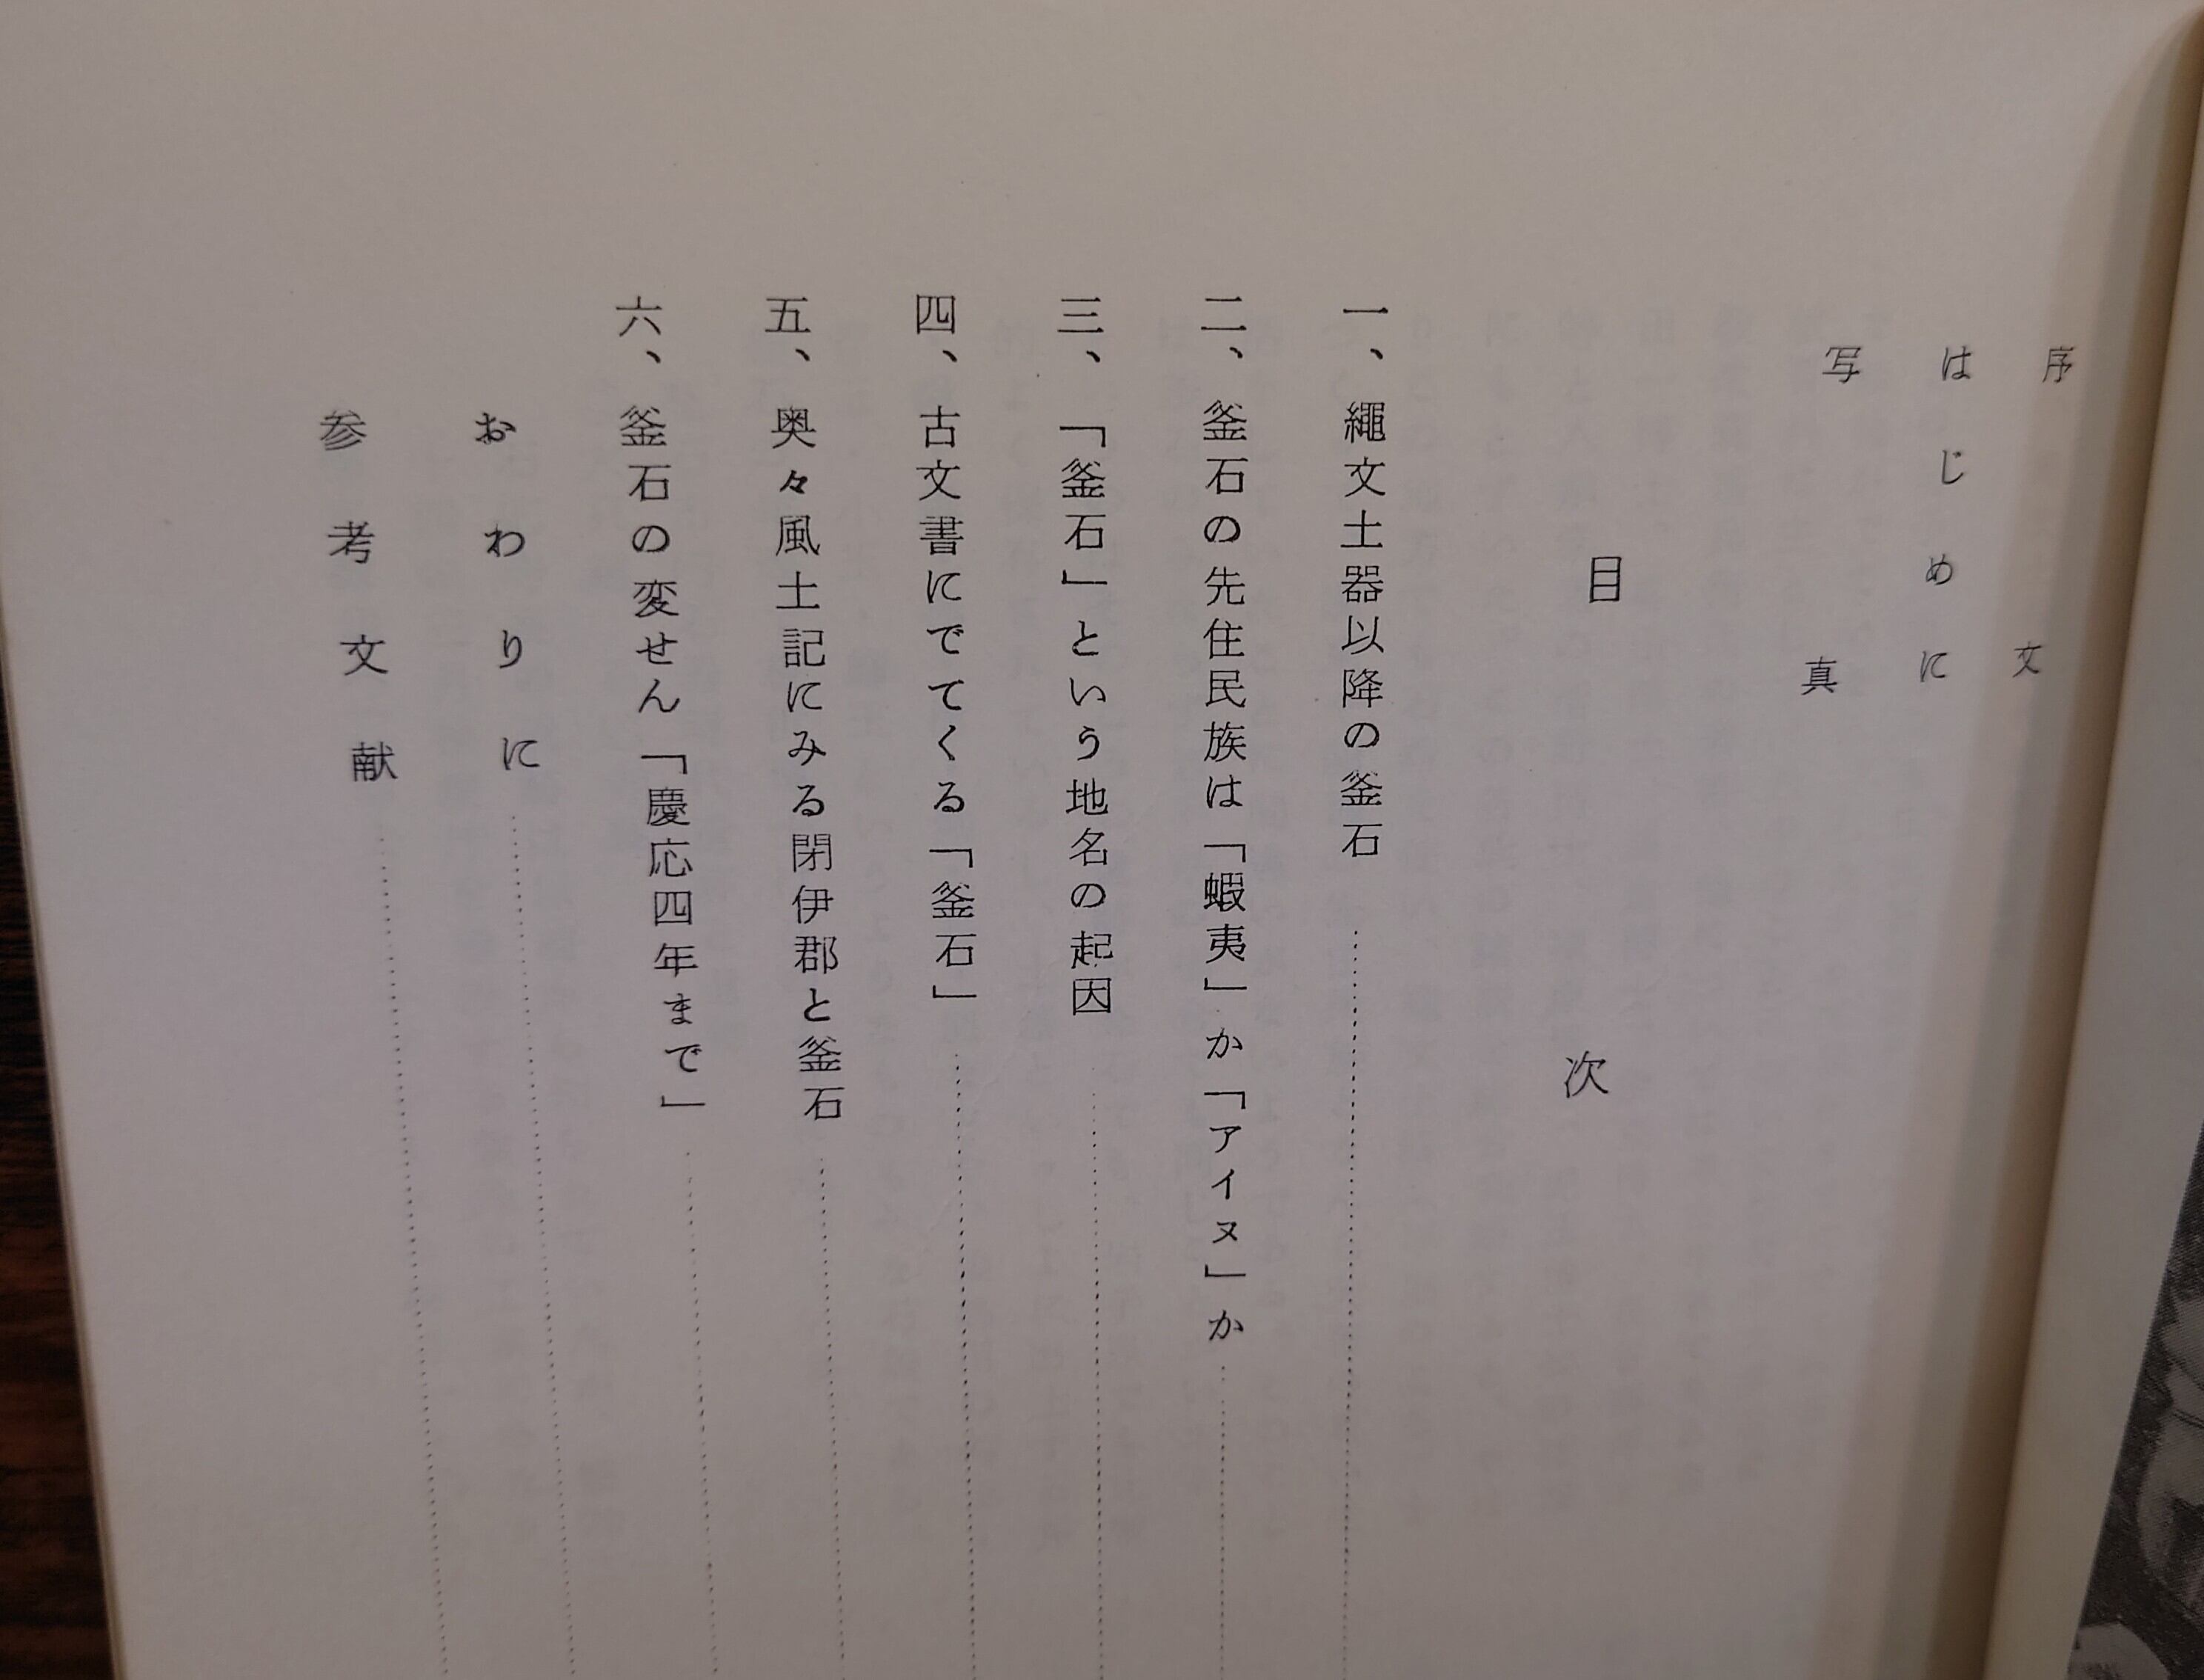 序文
はじめに
写真
目次
一、縄文土器以降の釜石
二、釜石の先住民族は「蝦夷」か「アイヌ」か
三、「釜石」という地名の起因
四、古文書にでてくる「釜石」
五、奥々風土記にみる閉伊郡と釜石
六、釜石の変せん「慶応四年まで」
おわりに
参考文献